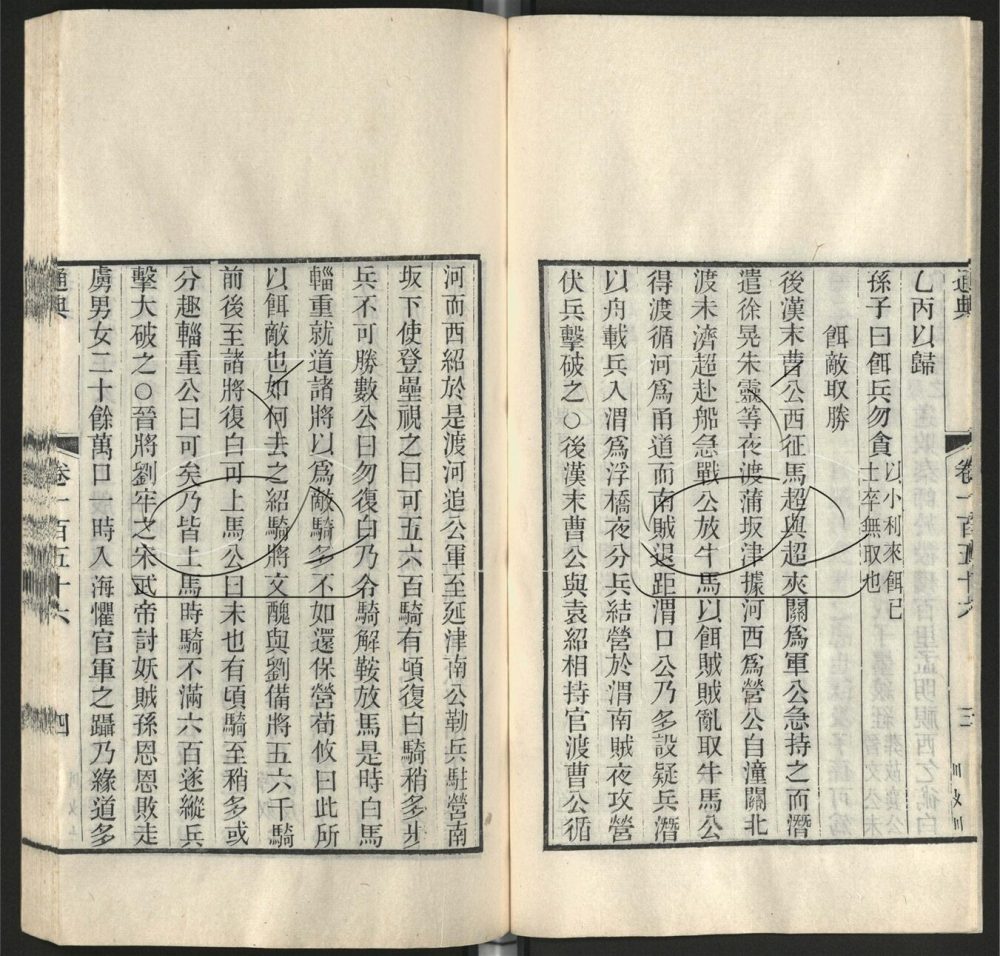 通典
卷一百五十六
三
乙丙以歸
孫子曰餌兵勿貪以小利來餌已士卒無取也
餌敵取勝
後漢末曹公西征馬超與超夾關爲軍公急持之而潛
遣徐晃朱靈等夜渡蒲坂津據河西爲營公自潼關北
渡未濟超赴船急戰公放牛馬以餌賊賊亂取牛馬公
得渡循河爲甬道而南賊退距渭口公乃多設疑兵潛
以舟載兵入渭爲浮橋夜分兵結營於渭南賊夜攻營
伏兵擊破之○後漢末曹公與袁紹相持官渡曹公循
河而西紹於是渡河追公軍至延津南公勒兵駐營南
坂下使登壘視之曰可五六百騎有頃復白騎稍多步
兵不可勝數公曰勿復白乃令騎解鞍放馬是時白馬
輜重就道諸將以爲敵騎多不如還保營荀攸曰此所
以餌敵也如何去之紹騎將文醜與劉備將五六千騎
前後至諸將復白可上馬公曰未也有頃騎至稍多或
分趣輜重公曰可矣乃皆上馬時騎不滿六百遂縱兵
擊大破之○晉將劉牢之宋武帝討妖賊孫恩恩敗走
虜男女二十餘萬口一時入海懼官軍之躡乃緣道多
通典
卷一百五十六
四